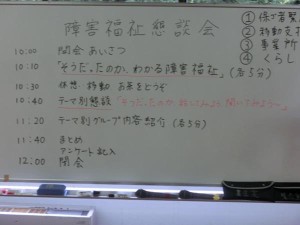 障害福祉懇談会
10:00 開会あいさつ
10:10 「そうだったのか、わかる障害福祉」(各5分)
10:30 休憩 移動 お茶をどうぞ
10:40 テーマ別懇談「そうだったのか、
11:20 テーマ別グループ内容紹介(各5分)
11:40 まとめ
アンケート記入
12:00 閉会
①
② 移動支
③ 事業所
④ くらし